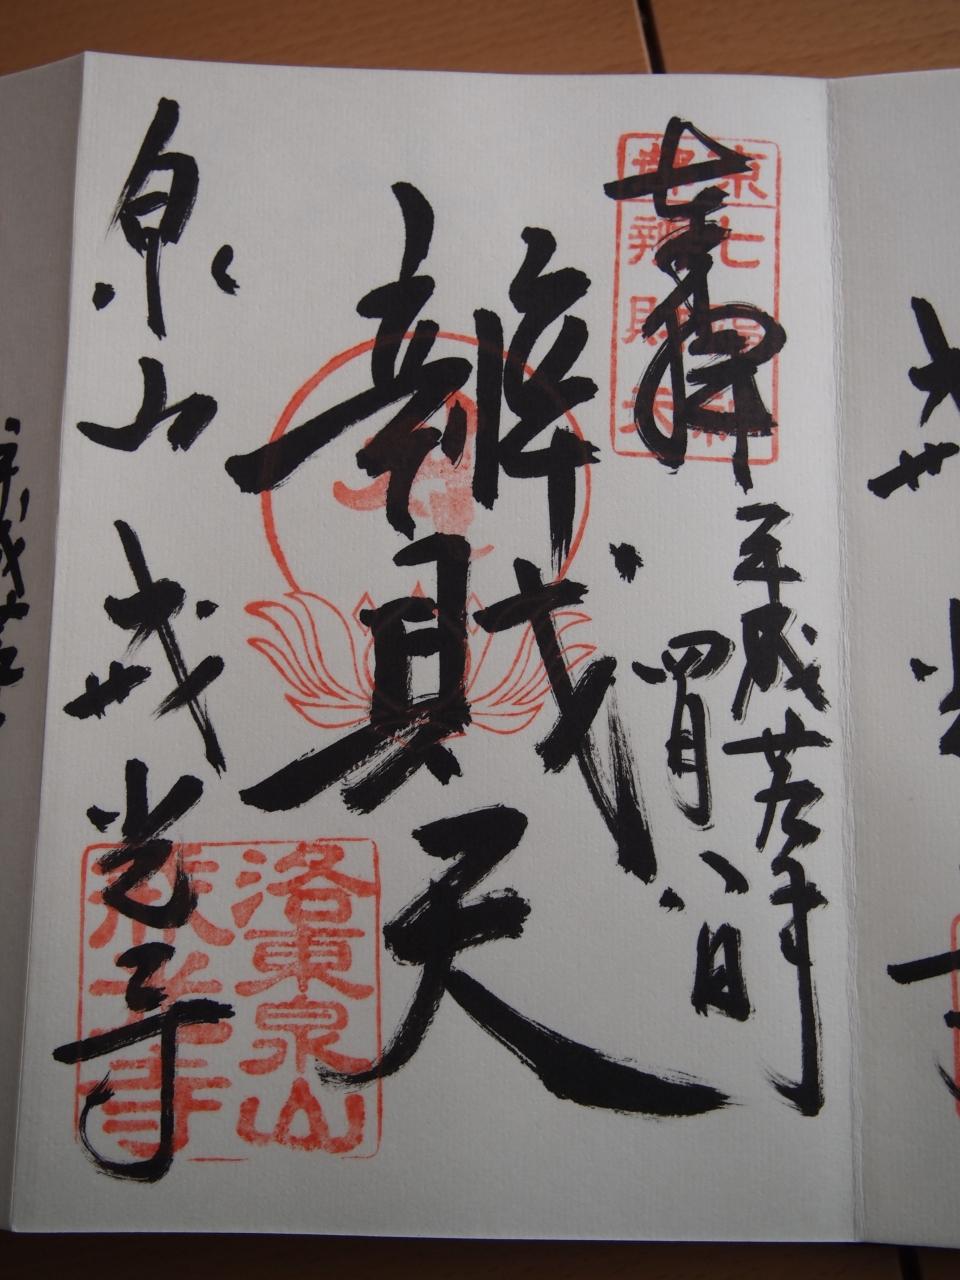 奉拝
平成廿 年
四月八日
辨財天
泉山 戒光寺
京都
七福神
辨財天
洛東泉山
戒光寺